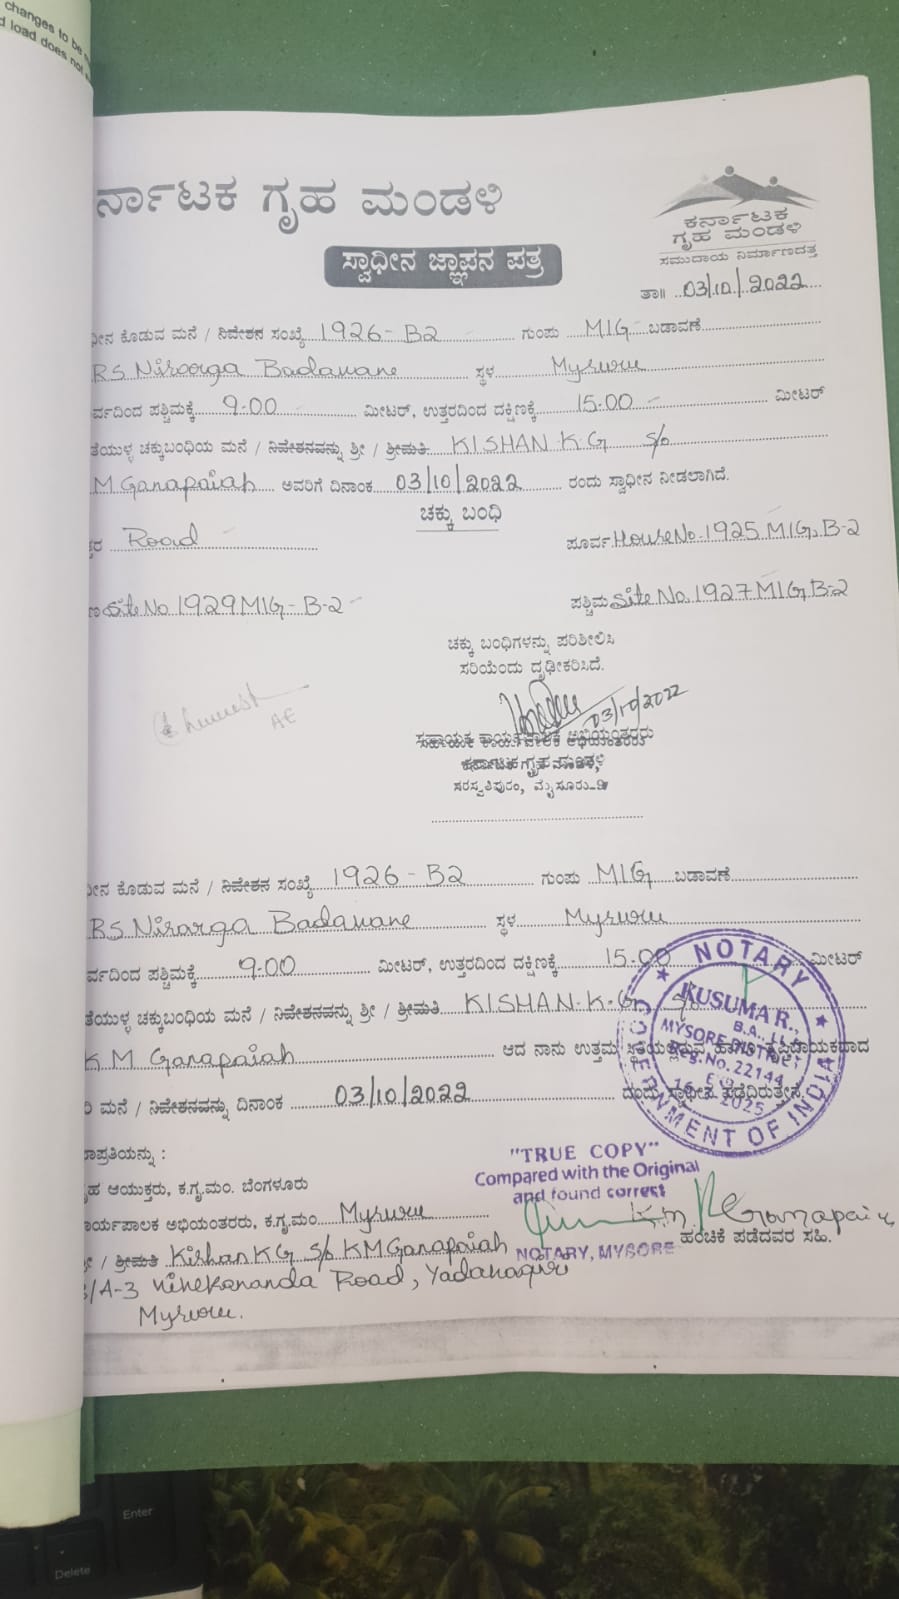 changes to be
load does not
ರ್ನಾಟಕ ಗೃಹ ಮಂಡಳಿ
ಕರ್ನಾಟಕ
ಗೃಹ ಮಂಡಳಿ
ಸಮುದಾಯ ನಿರ್ಮಾಣದತ್ತ
ಸ್ವಾಧೀನ ಜ್ಞಾಪನ ಪತ್ರ
ತಾ॥ 03/10/2022
ೀನ ಕೊಡುವ ಮನೆ / ನಿವೇಶನ ಸಂಖ್ಯೆ 1926-B2 ಗುಂಪು MIG ಬಡಾವಣೆ
RS Niroorga Badavane ಸ್ಥಳ Mysuru
ರ್ವದಿಂದ ಪಶ್ಚಿಮಕ್ಕೆ 9.00 ಮೀಟರ್, ಉತ್ತರದಿಂದ ದಕ್ಷಿಣಕ್ಕೆ 15.00 ಮೀಟರ್
ತೆಯುಳ್ಳ ಚಕ್ಕುಬಂಧಿಯ ಮನೆ / ನಿವೇಶನವನ್ನು ಶ್ರೀ / ಶ್ರೀಮತಿ KISHAN.K.G S/o
M Ganapaiah ಅವರಿಗೆ ದಿನಾಂಕ 03/10/2022 ರಂದು ಸ್ವಾಧೀನ ನೀಡಲಾಗಿದೆ.
ಚಕ್ಕು ಬಂಧಿ
ತ್ತರ Road ಪೂರ್ವ House No. 1925 MIG, B-2
ಣ Site No. 1929 MIG-B-2 ಪಶ್ಚಿಮ Site No. 1927 MIG B-2
ಚಕ್ಕು ಬಂಧಿಗಳನ್ನು ಪರಿಶೀಲಿಸಿ
ಸರಿಯೆಂದು ದೃಢೀಕರಿಸಿದೆ.
AE
03/10/2022
ಸಹಾಯಕ ಕಾರ್ಯಪಾಲಕ ಅಭಿಯಂತರರು
ಕರ್ನಾಟಕ ಗೃಹ ಮಂಡಳಿ
ಸರಸ್ವತಿಪುರಂ, ಮೈಸೂರು-9
ೀನ ಕೊಡುವ ಮನೆ / ನಿವೇಶನ ಸಂಖ್ಯೆ 1926-B2 ಗುಂಪು MIG ಬಡಾವಣೆ
RS Nisarga Badavane ಸ್ಥಳ Mysuru
ರ್ವದಿಂದ ಪಶ್ಚಿಮಕ್ಕೆ 9.00 ಮೀಟರ್, ಉತ್ತರದಿಂದ ದಕ್ಷಿಣಕ್ಕೆ 15.00 ಮೀಟರ್
ತೆಯುಳ್ಳ ಚಕ್ಕುಬಂಧಿಯ ಮನೆ / ನಿವೇಶನವನ್ನು ಶ್ರೀ / ಶ್ರೀಮತಿ KISHAN.K.G S/o
K M Ganapaiah ಆದ ನಾನು ಉತ್ತಮ ಸ್ಥಿತಿಯಲ್ಲಿರುವ ಹಾಗೂ ತೃಪ್ತಿದಾಯಕವಾದ
ಮನೆ / ನಿವೇಶನವನ್ನು ದಿನಾಂಕ 03/10/2022 ರಂದು ಸ್ವಾಧೀನ ಪಡೆದಿರುತ್ತೇನೆ.
NOTARY
KUSUMA R.,
B.A., LL.
MYSORE DISTRICT
Reg. No. 22144
2025
GOVERNMENT OF INDIA
ಪ್ರತಿಯನ್ನು :
ಹ ಆಯುಕ್ತರು, ಕ.ಗೃ.ಮಂ. ಬೆಂಗಳೂರು
ಾರ್ಯಪಾಲಕ ಅಭಿಯಂತರರು, ಕ.ಗೃ.ಮಂ Mysuru
"TRUE COPY"
Compared with the Original
and found correct
NOTARY, MYSORE
K.M. Ganapaia
ಹಂಚಿಕೆ ಪಡೆದವರ ಸಹಿ.
/ ಶ್ರೀಮತಿ Kishan K G S/o K M Ganapaiah
/A-3 Vivekananda Road, Yadavagiri
Mysuru.
Enter
Delete